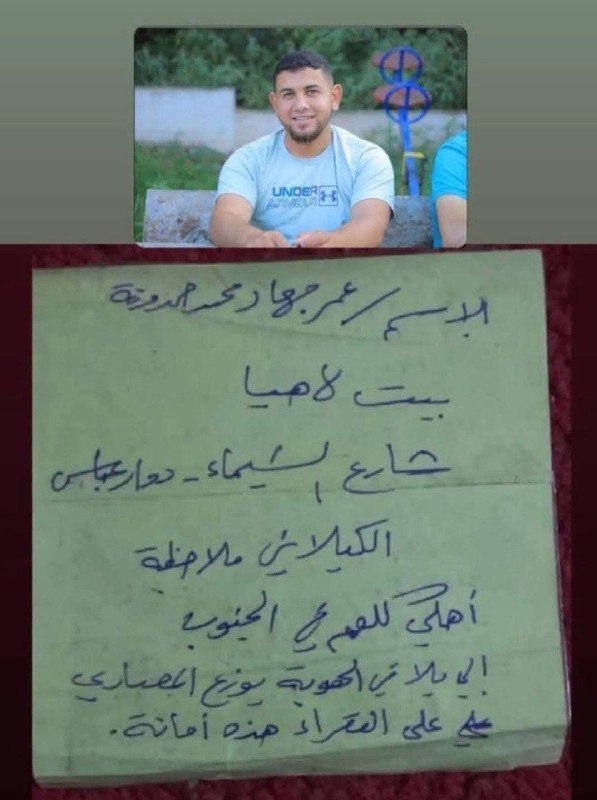 UNDER
ARMOUR
الاسم / عمر جهاد محمد حمدونة
بيت لاهيا
شارع الشيماء - دوار عباس
الكيلاني ملاحظة
أهلي كلهم في الجنوب
الي يلاقي الهوية يوزع المصاري
علي على الفقراء هذه أمانة.